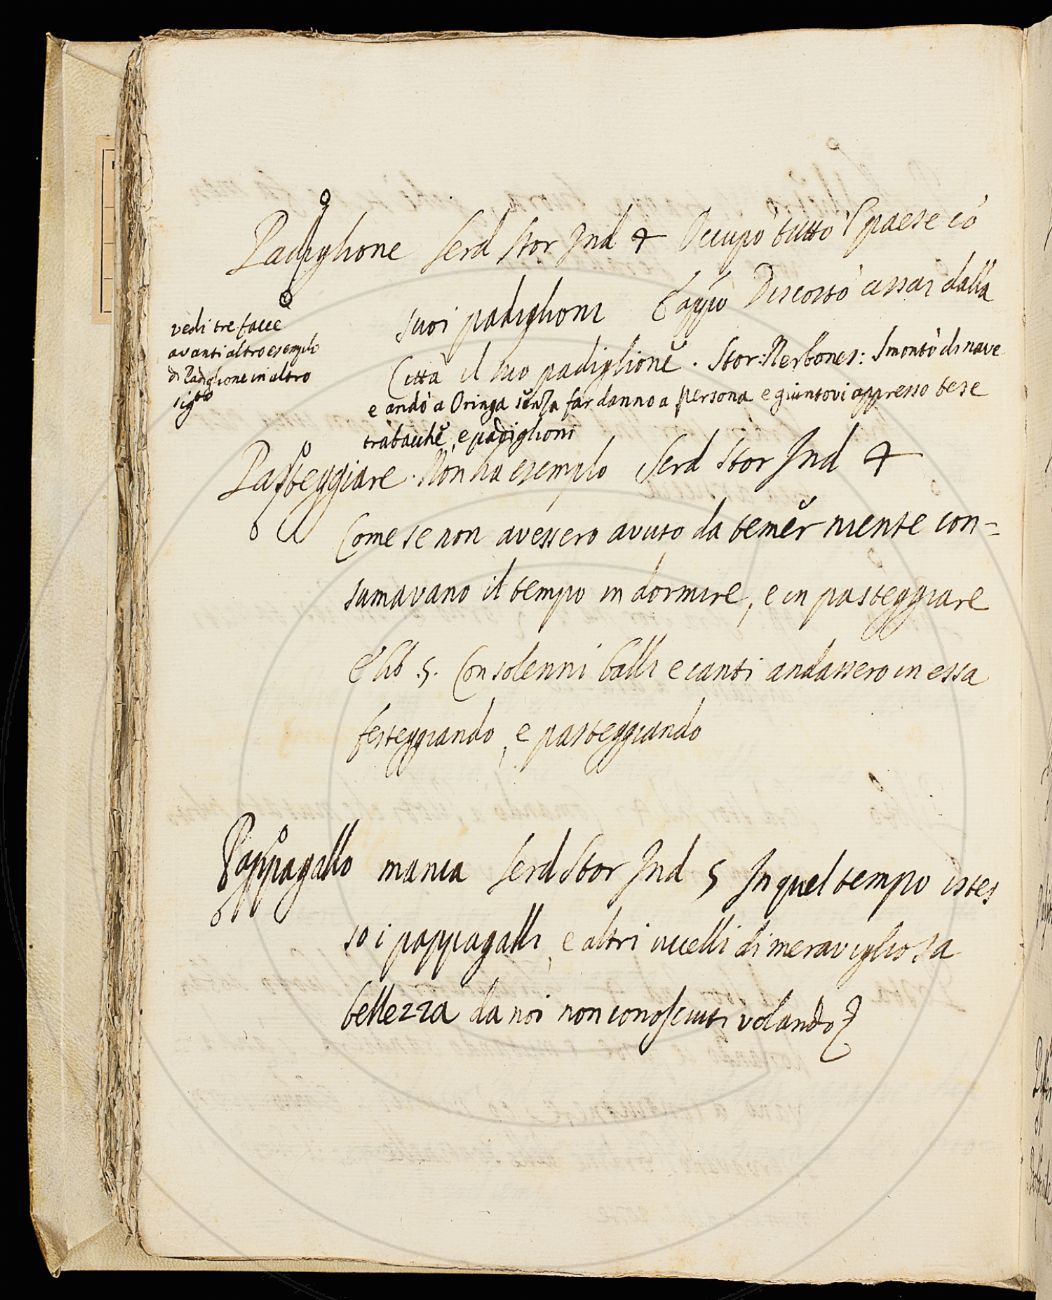 Padiglione Serd Stor Ind 4 Occupò tutto 'l paese cō
suoi padiglioni Discostò assai dalla
Città il suo padiglione. Stor: Nerbones: Smontò di nave
e andò a Oringa senza far danno a persona e giuntovi appresso tese
trabacche, e padiglioni
vedi tre facce
avanti altro esemplo
di Padiglione in altro
sig.to
Pasteggiare. Non ha esemplo Serd Stor Ind 4
Come se non avessero avuto da temer niente con=
sumavano il tempo in dormire, e in pasteggiare
E lib .5. Con solenni balli e canti andassero in essa
festeggiando, e pasteggiando
Pappagallo manca Serd Stor Ind 5 In quel tempo istes
so i pappagalli, e altri uccelli di meravigliosa
bellezza da noi non conosciuti volando